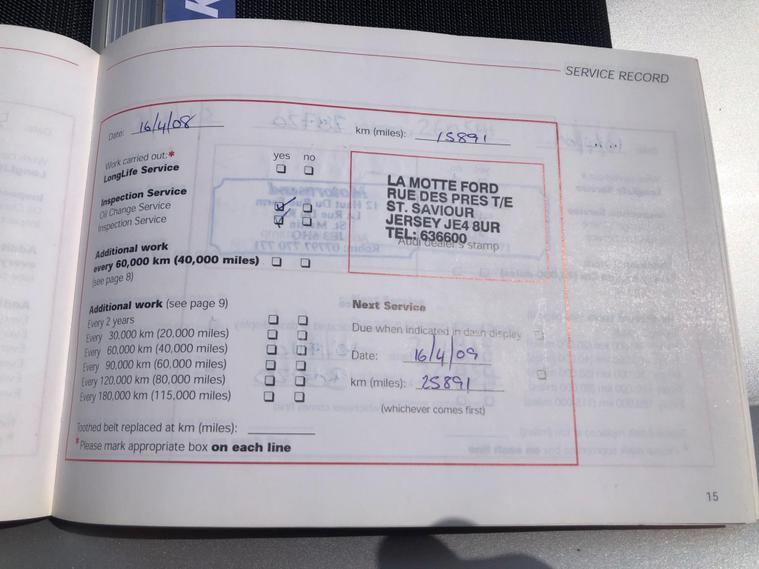 K
SERVICE RECORD
Date: 16/4/08
km (miles): 15891
Work carried out:*
yes no
LongLife Service
Inspection Service
Oil Change Service
Inspection Service
LA MOTTE FORD
RUE DES PRES T/E
ST. SAVIOUR
JERSEY JE4 8UR
TEL: 636600
Audi dealer's stamp
Additional work
every 60,000 km (40,000 miles)
(see page 8)
Additional work (see page 9)
Every 2 years
Every 30,000 km (20,000 miles)
Every 60,000 km (40,000 miles)
Every 90,000 km (60,000 miles)
Every 120,000 km (80,000 miles)
Every 180,000 km (115,000 miles)
Next Service
Due when indicated in dash display
Date: 16/4/09
km (miles): 25891
(whichever comes first)
Toothed belt replaced at km (miles):
*Please mark appropriate box on each line
15